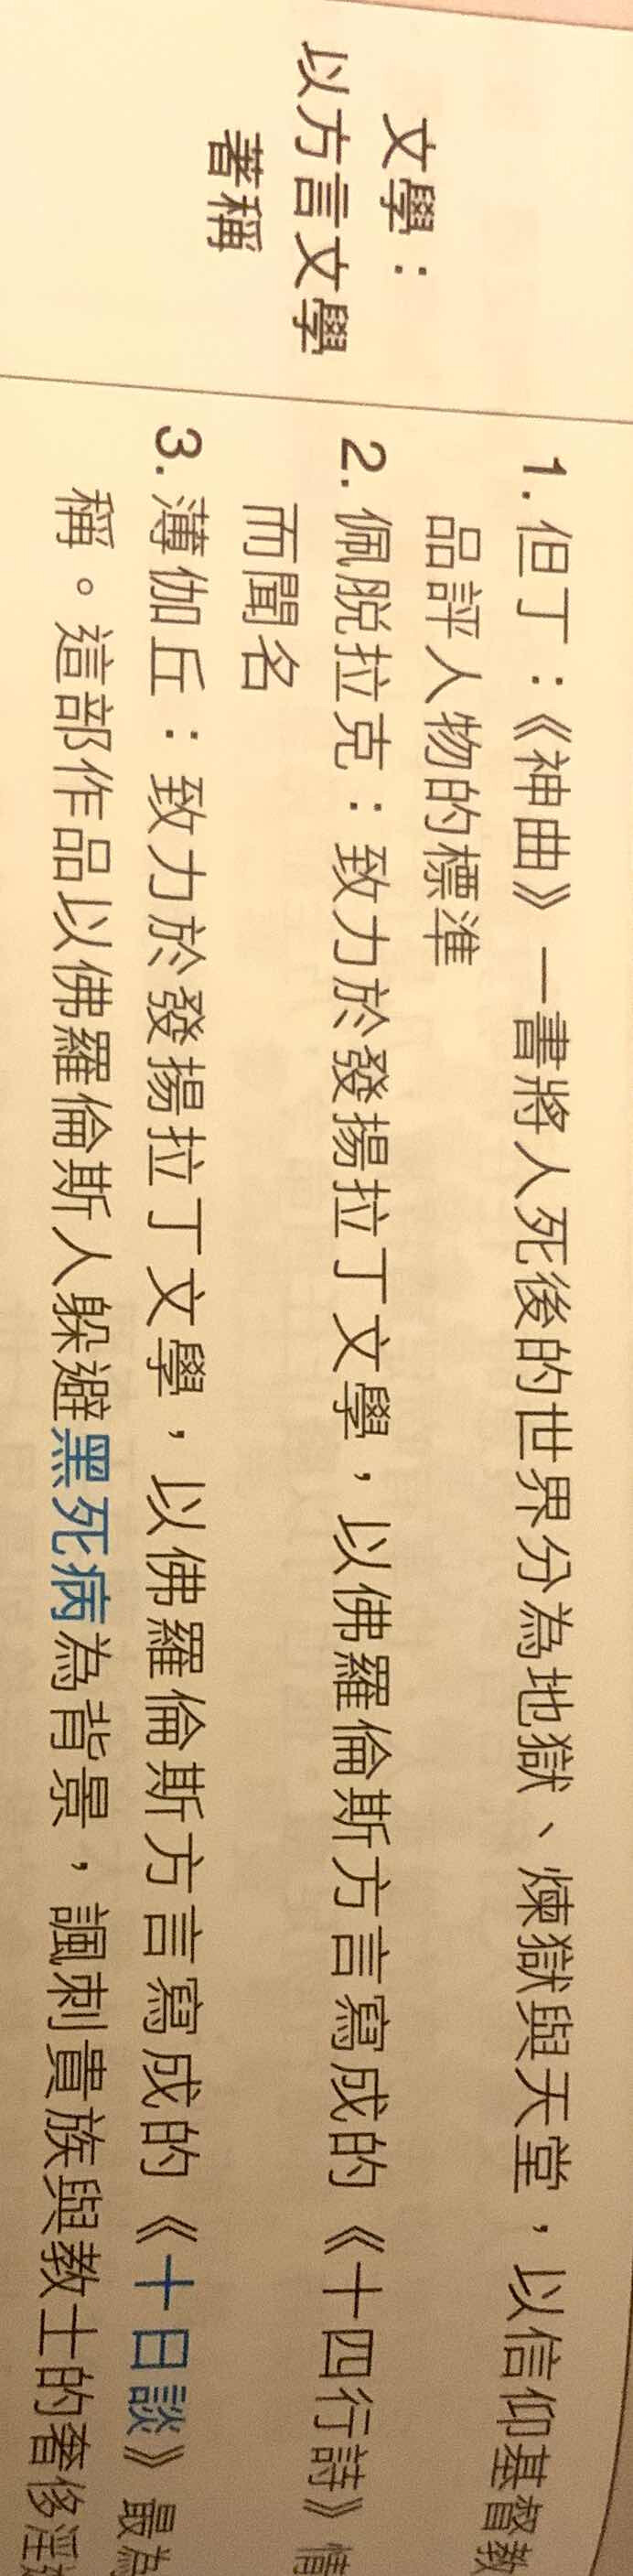 文學：
以方言文學
著稱
1. 但丁：《神曲》一書將人死後的世界分為地獄、煉獄與天堂，以信仰基督教
品評人物的標準
2. 佩脫拉克：致力於發揚拉丁文學，以佛羅倫斯方言寫成的《十四行詩》情
而聞名
3. 薄伽丘：致力於發揚拉丁文學，以佛羅倫斯方言寫成的《十日談》最為
稱。這部作品以佛羅倫斯人躲避黑死病為背景，諷刺貴族與教士的奢侈淫